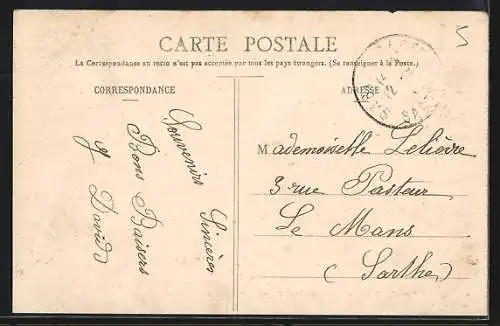 CARTE POSTALE
La Correspondance au recto n'est pas acceptée par tous les pays étrangers. (Se renseigner à la Poste.)
CORRESPONDANCE
Souvenirs Sincères
Bons Baisers
G David
ADRESSE
Mademoiselle Lelièvre
3 rue Pasteur
Le Mans
(Sarthe)